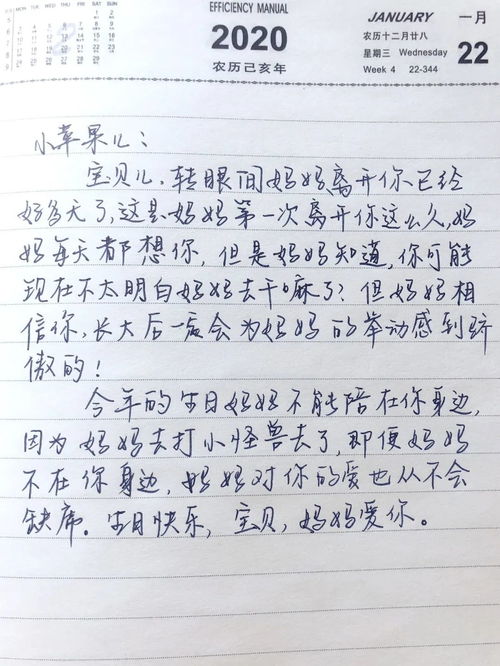 EFFICIENCY MANUAL
2020
农历己亥年
JANUARY 一月
农历十二月廿八
星期三 Wednesday 22
Week 4 22-344
小苹果儿：
宝贝儿，转眼间妈妈离开你已经
好多天了，这是妈妈第一次离开你这么久，妈
妈每天都想你，但是妈妈知道，你可能
现在不太明白妈妈去干嘛了？但妈妈相
信你，长大后一定会为妈妈的举动感到骄
傲的！
今年的生日妈妈不能陪在你身边，
因为妈妈去打小怪兽去了，即便妈妈
不在你身边，妈妈对你的爱也从不会
缺席。生日快乐，宝贝，妈妈爱你。